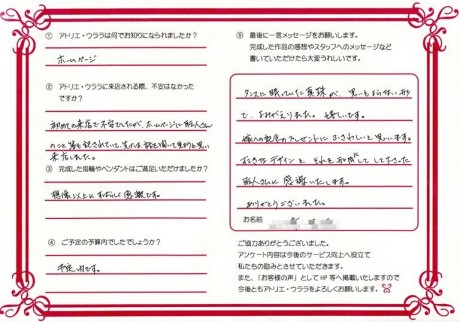 ① アトリエ・ウララは何でお知りになられましたか？
ホームページ
② アトリエ・ウララに来店される際、不安はなかったですか？
初めての来店で不安でしたが、ホームページに
来店しました。
③ 完成した指輪やペンダントはご満足いただけましたか？
想像以上にすばらしく感激です。
④ ご予定の予算内でしたでしょうか？
予定内です。
⑤ 最後に一言メッセージをお願いします。
完成した作品の感想やスタッフへのメッセージなど
書いていただけたら大変うれしいです。
タンスに眠っていた真珠が、思いもよらない形
で、よみがえりました。嬉しいです。
プレゼントにふさわしいと思います。
すてきなデザインと それを形にして下さった
職人さんに感謝いたします。
ありがとうございました。
お名前
ご協力ありがとうございました。
アンケート内容は今後のサービス向上へ役立て
私たちの励みとさせていただきます。
また、「お客様の声」として HP 等へ掲載いたしますので
今後ともアトリエ・ウララをよろしくお願いします。